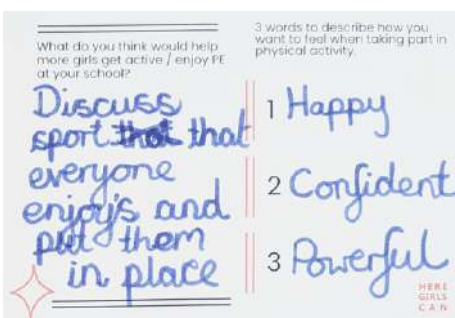 What do you think would help
more girls get active / enjoy PE
at your school?
Discuss
sport that that
everyone
enjoy's and
put them
in place
3 words to describe how you
want to feel when taking part in
physical activity.
1 Happy
2 Confident
3 Powerful
HERE
GIRLS
CAN